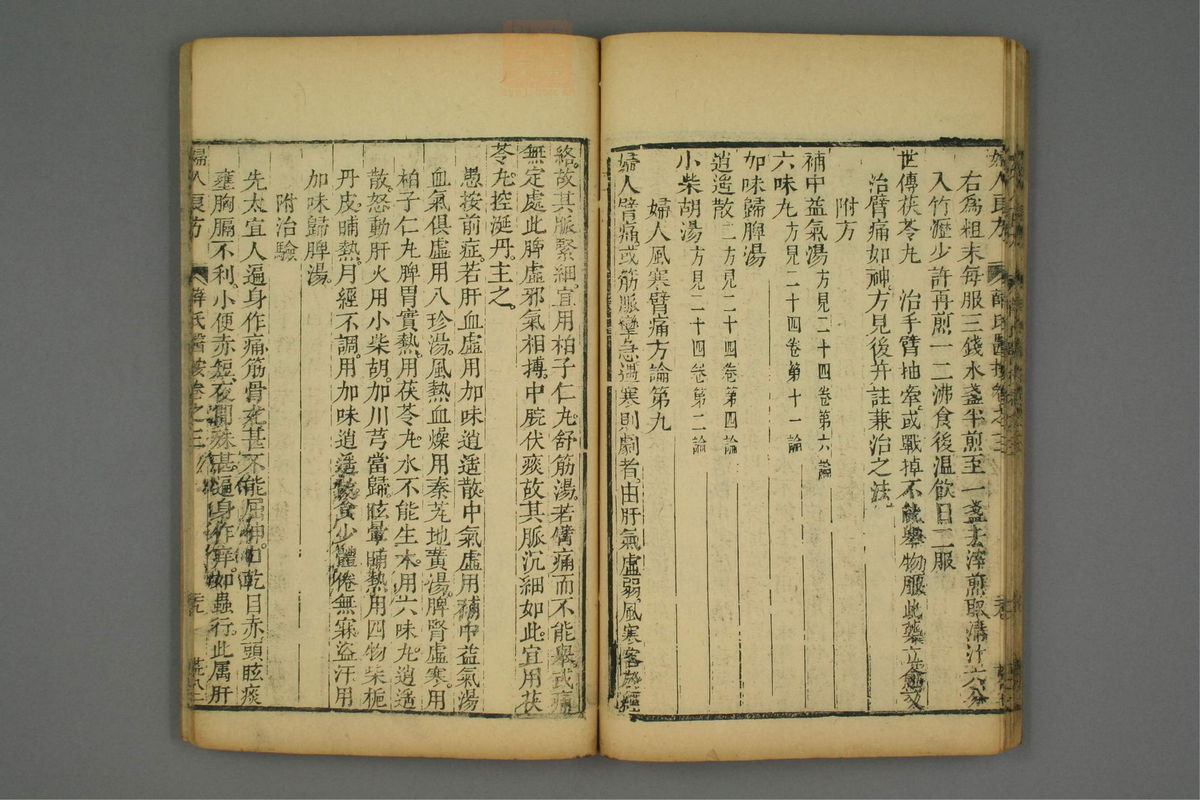 右爲粗末每服三錢水盞半煎至一盞去滓煎取清汁六分
入竹瀝少許再煎一二沸食後温飲日二服
世傳茯苓丸　治手臂抽牽或戰掉不能舉物服此藥立愈又
治臂痛如神方見後卉註兼治之法
附方
補中益氣湯方見二十四卷第六論
六味丸方見二十四卷第十一論
加味歸脾湯
逍遥散二方見二十四卷第四論
小柴胡湯方見二十四卷第二論
婦人風寒臂痛方論第九
婦人臂痛或筋脈攣急遇寒則劇者由肝氣虛弱風寒客於經
絡故其脈緊細宜用柏子仁丸舒筋湯若臂痛而不能舉或痛
無定處此脾虛邪氣相搏中脘伏痰故其脈沉細如此宜用茯
苓丸控涎丹主之
愚按前症若肝血虛用加味逍遥散中氣虛用補中益氣湯
血氣俱虛用八珍湯風熱血燥用秦艽地黄湯脾腎虛寒用
柏子仁丸脾胃實熱用茯苓丸水不能生木用六味丸逍遥
散怒動肝火用小柴胡加川芎當歸眩暈晡熱用四物柴梔
丹皮晡熱月經不調用加味逍遥散食少體倦無寐盜汗用
加味歸脾湯
附治驗
先太宜人遍身作痛筋骨尤甚不能屈伸口乾目赤頭眩痰
壅胸膈不利小便赤短夜間殊甚遍身作痒如蟲行此属肝
婦人良方　薛氏醫按卷之三